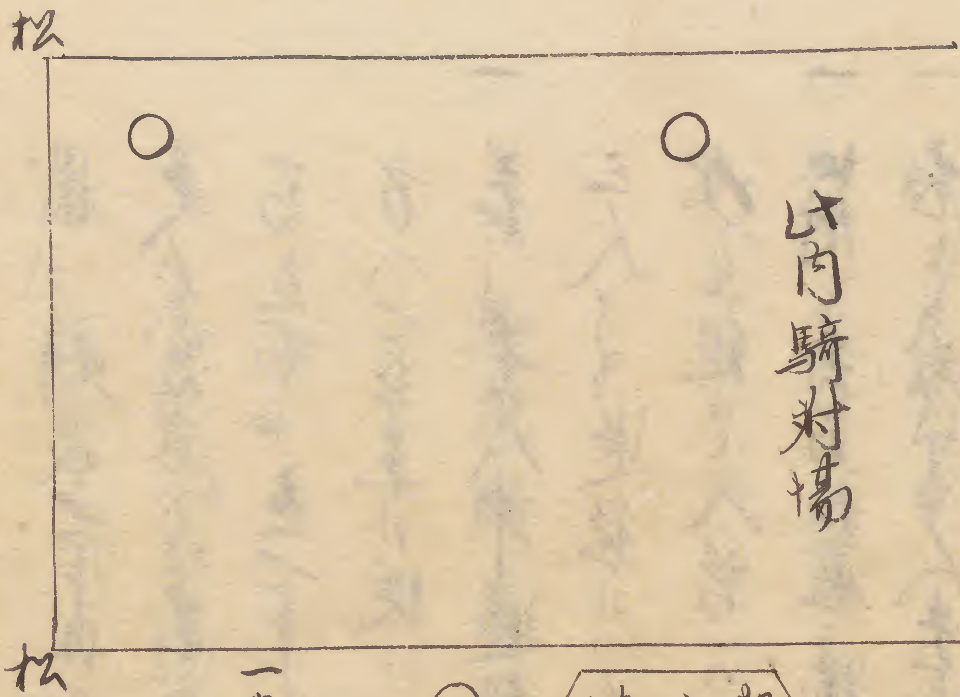 松
此内騎射場
松
一